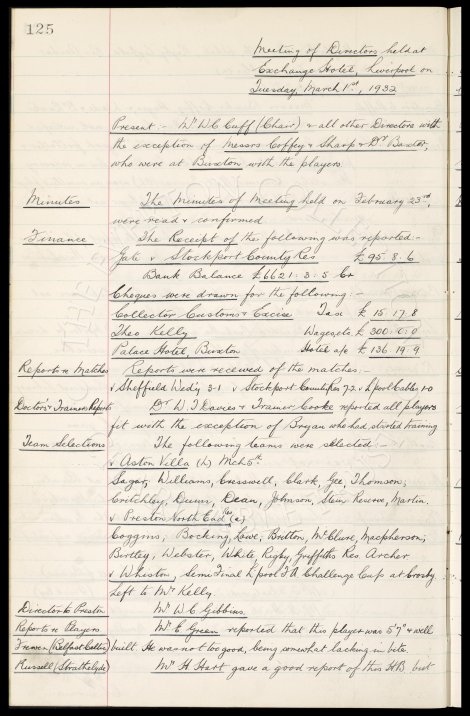 125
Meeting of Directors held at
Exchange Hotel, Liverpool on
Tuesday, March 1st, 1932
Present:- Mr W C Cuff (Chair) & all other Directors with
the exception of Messrs Coffey & Sharp & Dr Baxter,
who were at Buxton with the players.
Minutes The Minutes of Meeting held on February 23rd,
were read & confirmed
Finance The Receipt of the following was reported:-
Gate v Stockport County Res £95 8. 6
Bank Balance £6621. 3. 5 Cr
Cheques were drawn for the following:-
Collector Customs & Excise Tax £ 15. 17. 8
Theo Kelly Wages etc £ 300. 0. 0
Palace Hotel, Buxton Hotel a/c £ 136. 19. 9
Reports re Matches Reports were received of the matches:-
v Sheffield Wed'y 3-1 v Stockport County Res 7.2 v Lpool Cables 1-0
Doctor's & Trainers Reports Dr W T Davies & Trainer Cooke reported all players
fit with the exception of Bryan who had started training
Team Selections The following teams were selected:-
v Aston Villa (h) Mch 5th
Sagar, Williams, Cresswell, Clark, Gee, Thomson,
Critchley, Dunn, Dean, Johnson, Stein Reserve, Martin.
v Preston North End Res (a)
Coggins, Bocking, Lowe, Britton, McClure, Macpherson,
Birtley, Webster, White Rigby, Griffiths Res. Archer
v Whiston, Semi Final Lpool F A Challenge Cup at Crosby
Left to Mr Kelly
Director to Preston Mr W C Gibbins.
Reports re Players Mr E Green reported that this player was 5'9" & well
(Belfast Celtic) built. He was not too good, being somewhat lacking in bite.
Russell (Strathclyde) Mr H Hart gave a good report of this HB. but